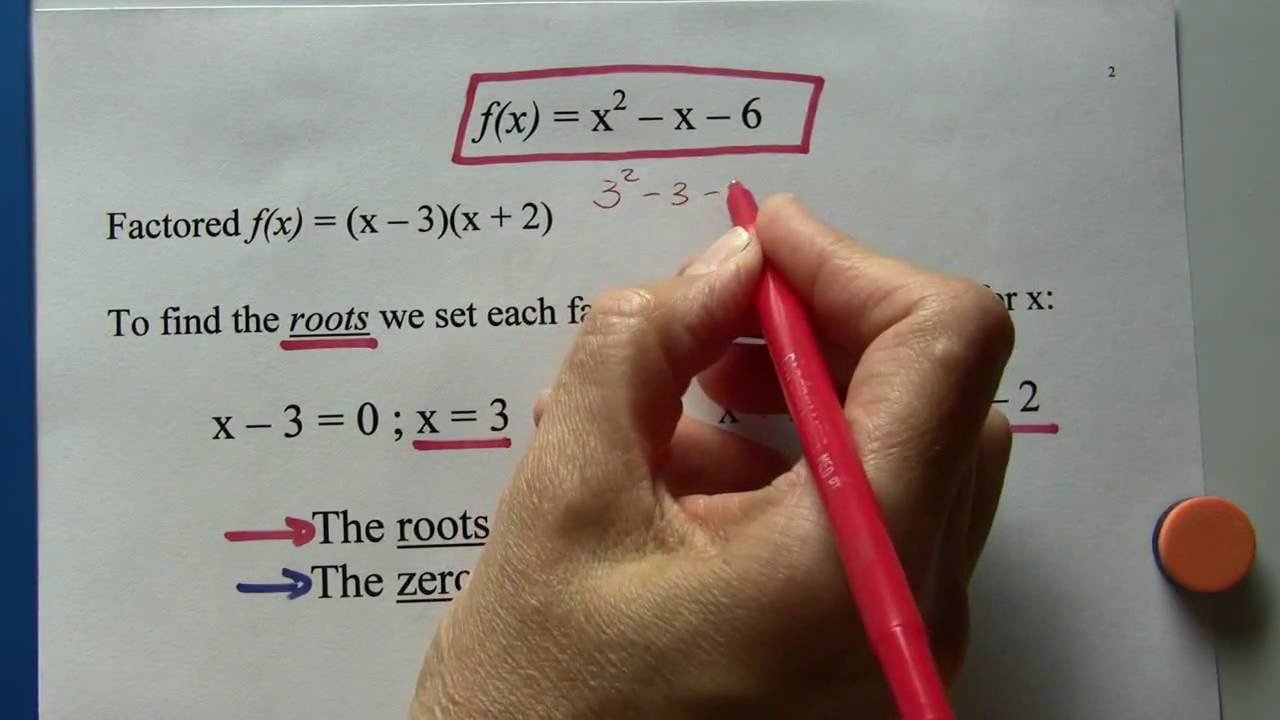 2
f(x) = x² – x – 6
3² – 3 –
Factored f(x) = (x – 3)(x + 2)
To find the roots we set each x:
x – 3 = 0 ; x = 3 – 2
The roots
The
MED PT